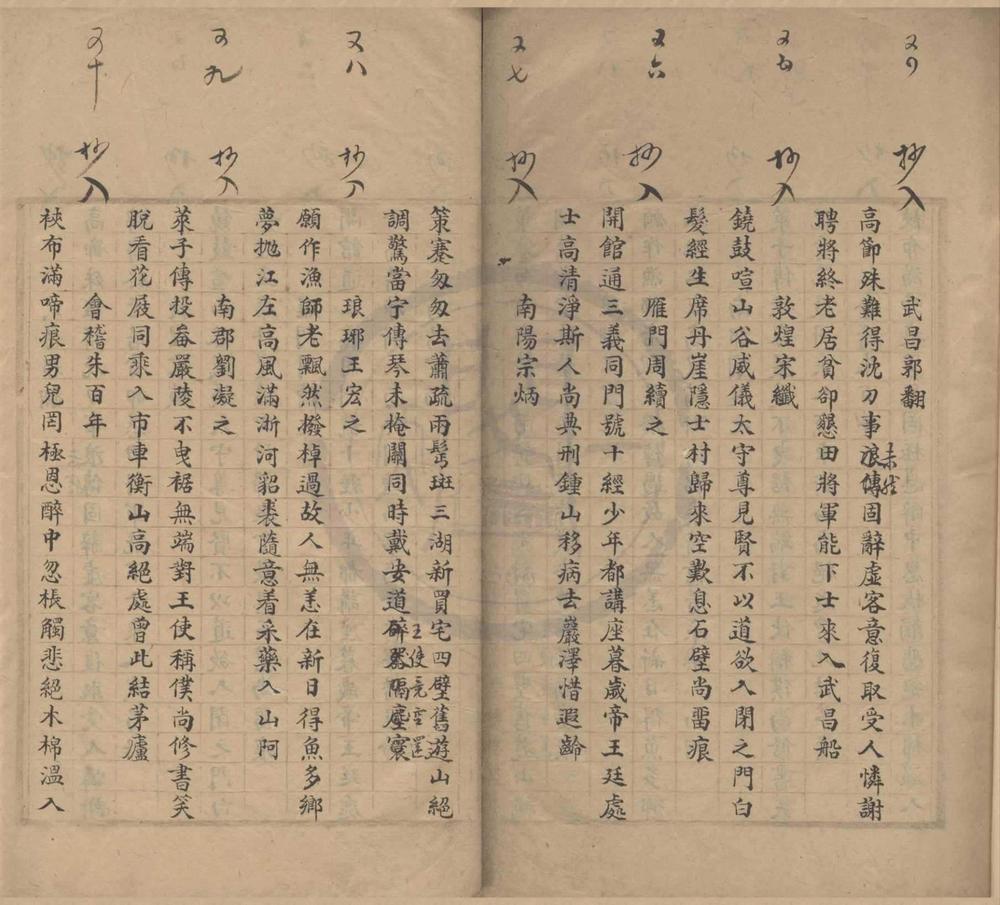 又四
抄入
武昌郭翻
高節殊難得沈刀事浪傳固辭虛客意復取受人憐謝
未然
聘將終老居貧卻懇田將軍能下士來入武昌船
又五
抄入
敦煌宋纖
鐃鼓喧山谷威儀太守尊見賢不以道欲入閉之門白
髮經生席丹崖隱士村歸來空歎息石壁尚畱痕
又六
抄入
雁門周續之
開館通三義同門號十經少年都講座暮歲帝王廷處
士高清淨斯人尚典刑鍾山移病去巖澤惜遐齡
又七
抄入
南陽宗炳
策蹇匆匆去蕭疏兩髩斑三湖新買宅四壁舊遊山絕
調驚當宁傳琴未掩關同時戴安道碎器隔塵寰
王使竟空還
又八
抄入
琅琊王宏之
願作漁師老飄然撥棹過故人無恙在新日得魚多鄉
夢拋江左高風滿浙河貂裘隨意着采藥入山阿
又九
抄入
南郡劉凝之
萊子傳投畚嚴陵不曳裾無端對王使稱僕尚修書笑
脫看花屐同乘入市車衡山高絕處曾此結茅廬
又十
抄入
會稽朱百年
裌布滿啼痕男兒罔極恩醉中忽棖觸悲絕木棉溫入